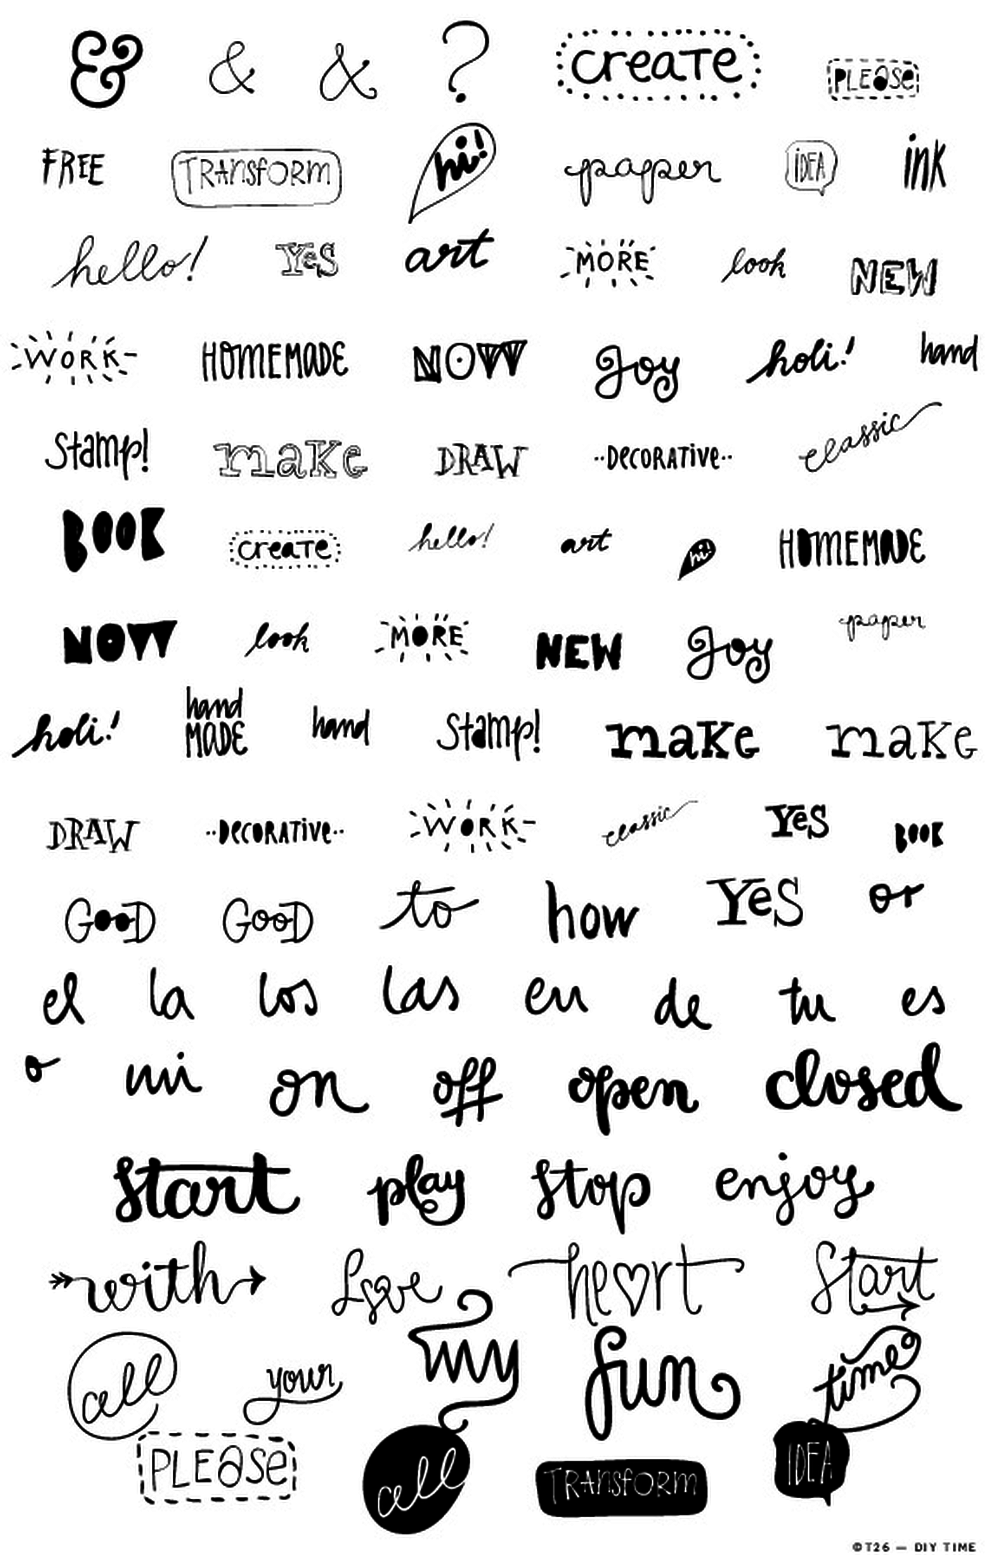 & & & ? create PLEASE
FREE TRANSFORM hi! paper IDEA ink
hello! YeS art MORE look NEW
WORK HOMEMADE NOW Joy holi! hand
Stamp! make DRAW ··DECORATIVE·· classic
BOOK create hello! art hi! HOMEMADE
NOW look MORE NEW Joy paper
holi! hand MADE hand Stamp! make make
DRAW ··DECORATIVE·· WORK classic YeS BOOK
GOOD GOOD to how YeS or
el la los las en de tu es
o mi on off open closed
start play stop enjoy
with Love heart Start
all your my fun time
PLEASE all TRANSFORM IDEA
©T26 — DIY TIME